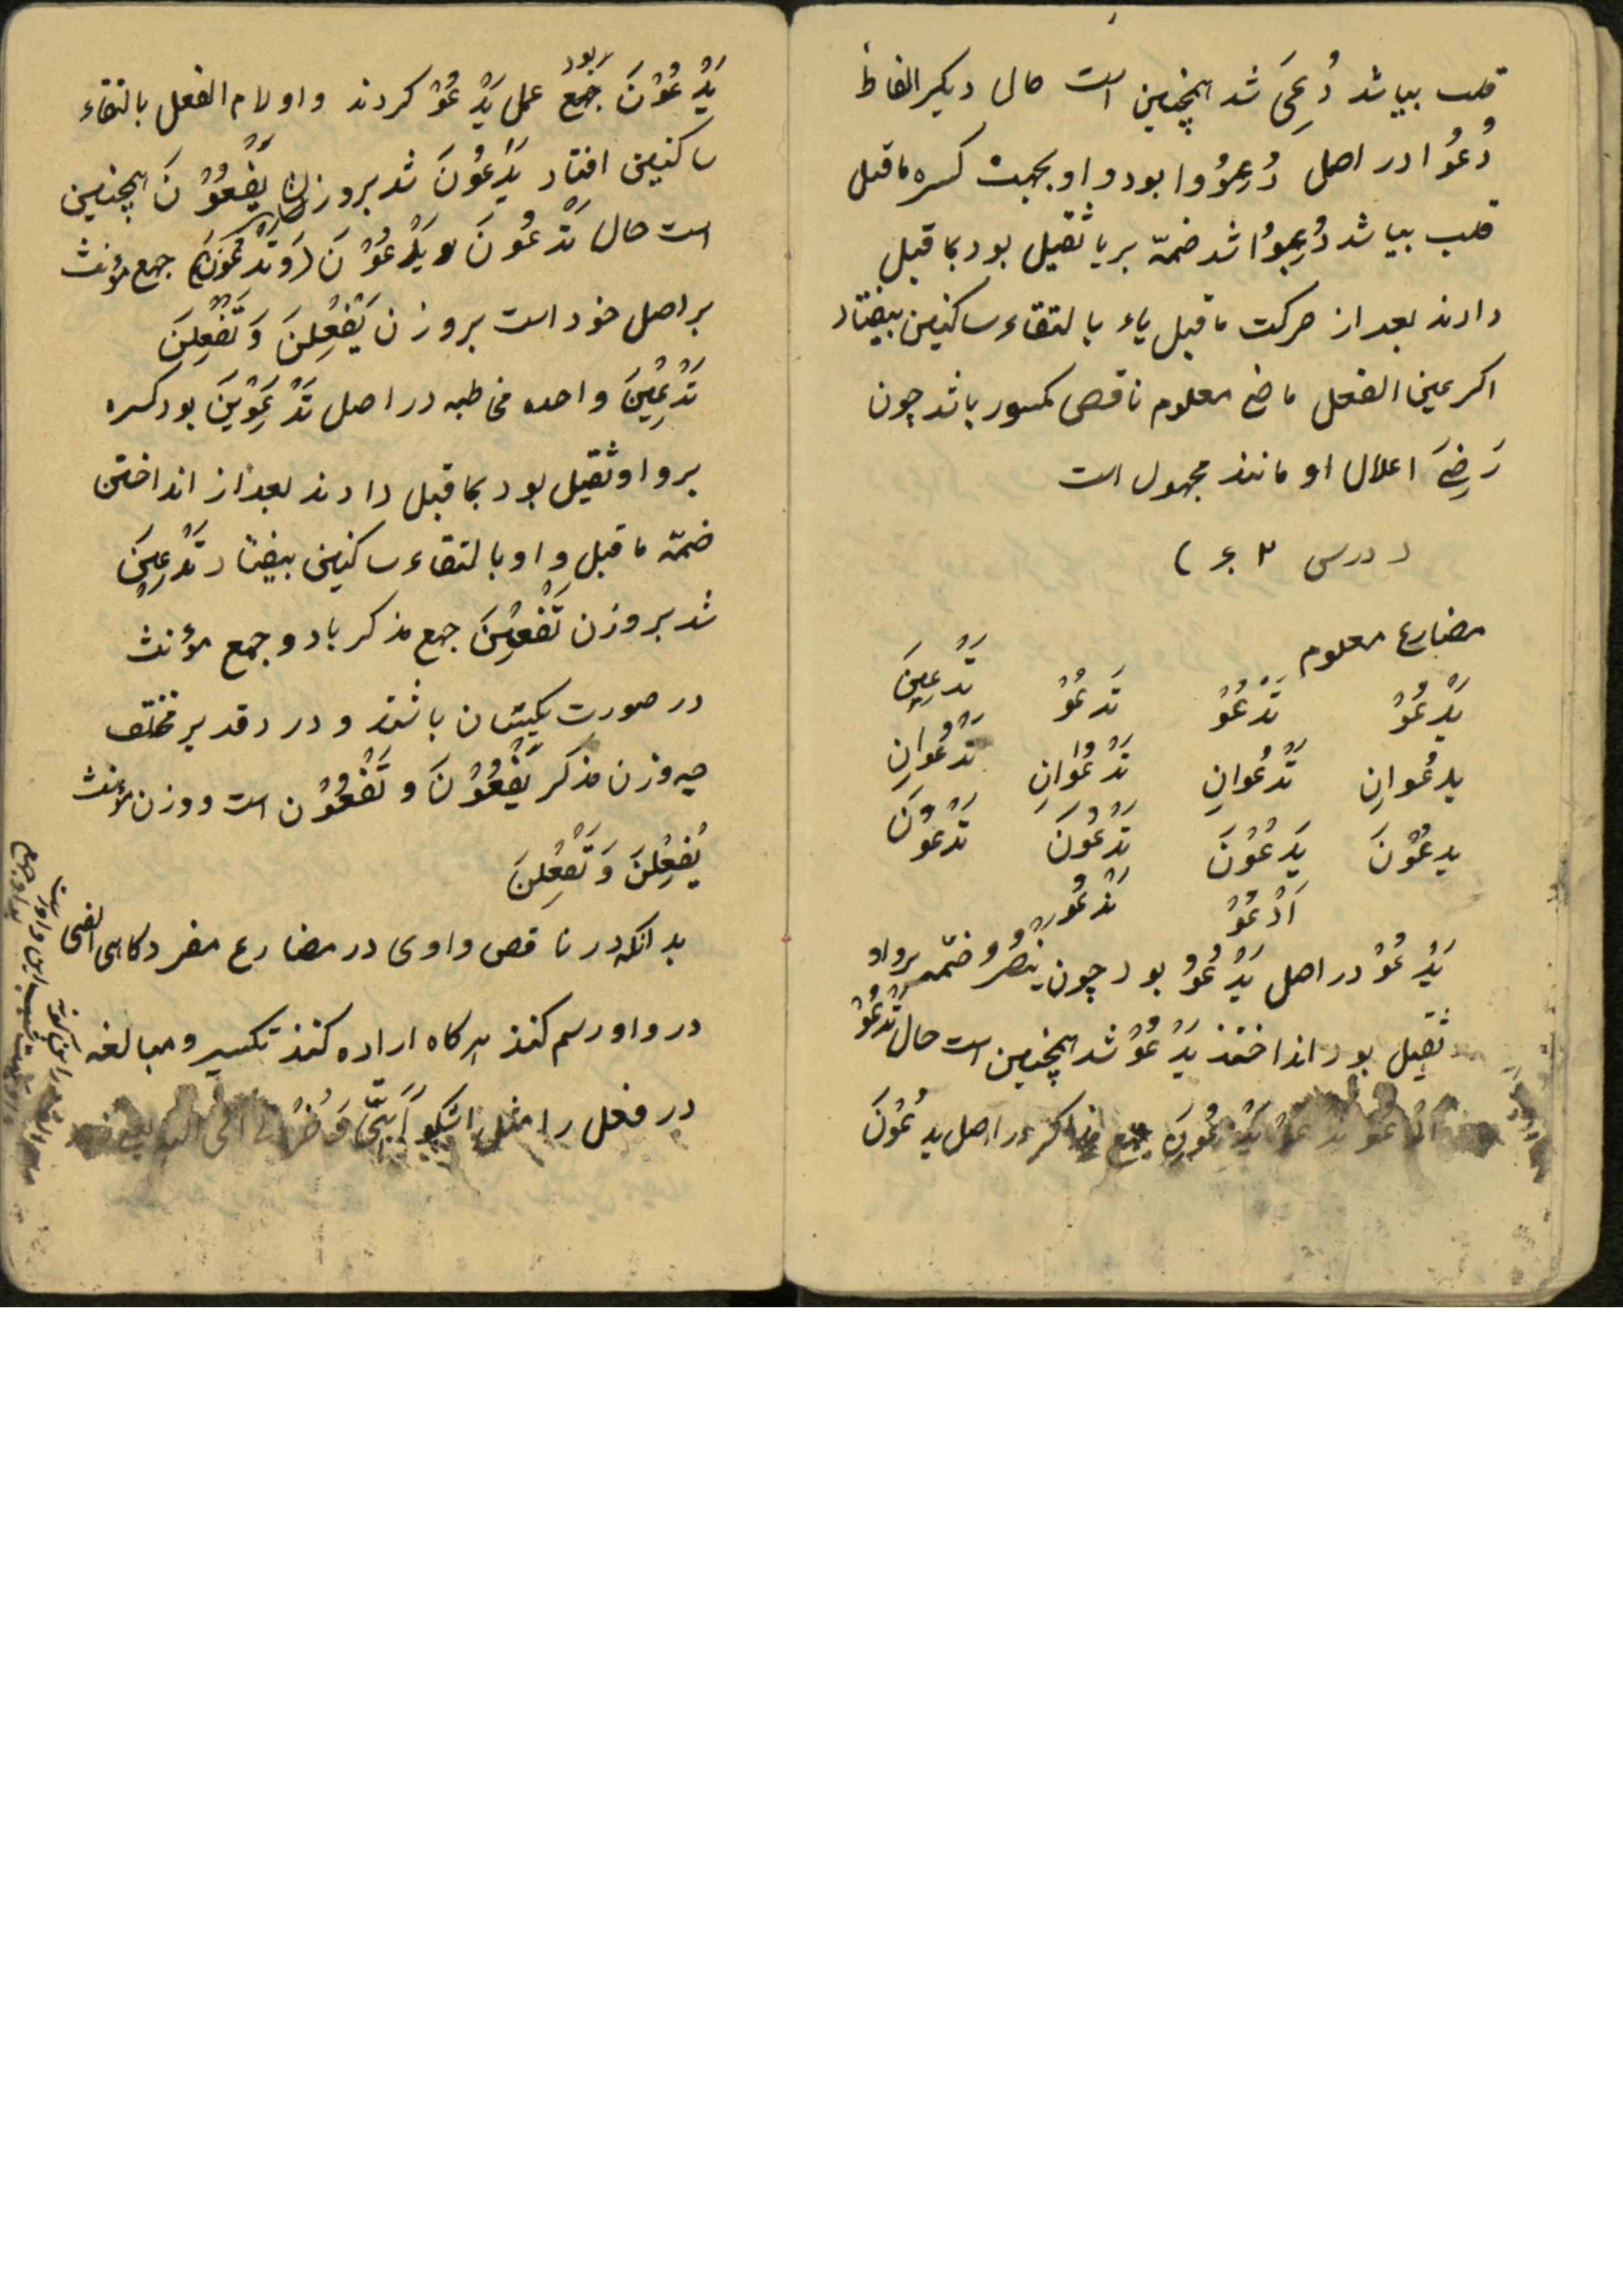 قلب بیا شد دُعِیَ شد همچنین است حال دیکر الفاظ
دُعُوا در اصل دُعِوُوا بود واو بجهت کسره ماقبل
قلب بیا شد دُعِیوُا شد ضمّه بر یا ثقیل بود بماقبل
دادند بعد از حرکت ماقبل یاء بالتقاء ساکنین بیفتاد
اکر عین الفعل ماضی معلوم ناقص مکسور باشد چون
رَضِیَ اعلال او مانند مجهول است
( درس ۴۲ )
مضارع معلوم
یَدْعُوْ تَدْعُوْ تَدعُوْ تَدْعِینَ
یدعُوانِ تَدْعُوانِ تَدْعُوانِ تَدْعُوانِ
یدعُوْنَ یَدْعُوْنَ تَدْعُوْنَ تَدْعُوْنَ
اَدْعُوْ نَدْعُوْ
یَدْعُوْ در اصل یَدْعُوُ بود چون یَنْصُرُ و ضمّه بر واو
ثقیل بود انداختند یَدْعُوْ شد همچنین است حال تَدْعُوْ
یَدْعُونَ جمع مذکر در اصل یدعُوُنَ
یَدْعُوْنَ جَمع بود عمل یَدْعُوْ کردند واو لام الفعل بالتقاء
ساکنین افتاد یَدْعُونَ شد بروزن یَفْعُوْنَ همچنین
است حال تَدْعُونَ و یَدْعُوْنَ (وَتَدْعُوْنَ) جمع مؤنث
بر اصل خود است بروزن یَفْعُلْنَ وَ تَفْعُلْنَ
تَدْعِیْنَ واحده مخاطبه در اصل تَدْعُوِیْنَ بود کسره
بر واو ثقیل بود بماقبل دادند بعد از انداختن
ضمّه ماقبل واو بالتقاء ساکنین بیفتاد تَدْعِیْنَ
شد بروزن تَفْعِیْنَ جمع مذکر باد و جمع مؤنث
در صورت یکسان باشند و در دقدیر مختلف
چه وزن مذکر یَفْعُوْنَ و تَفْعُوْن است و وزن مؤنث
یَفْعُلْنَ وَ تَفْعُلْنَ
بدانکه در ناقص واوی در مضارع مفرد کاهی الفی
در واو رسم کنند هر کاه اراده کنند تکسیر و مبالغه
در فعل را مثل اشکو اَبَثّی وَ حُزْنی الی الله